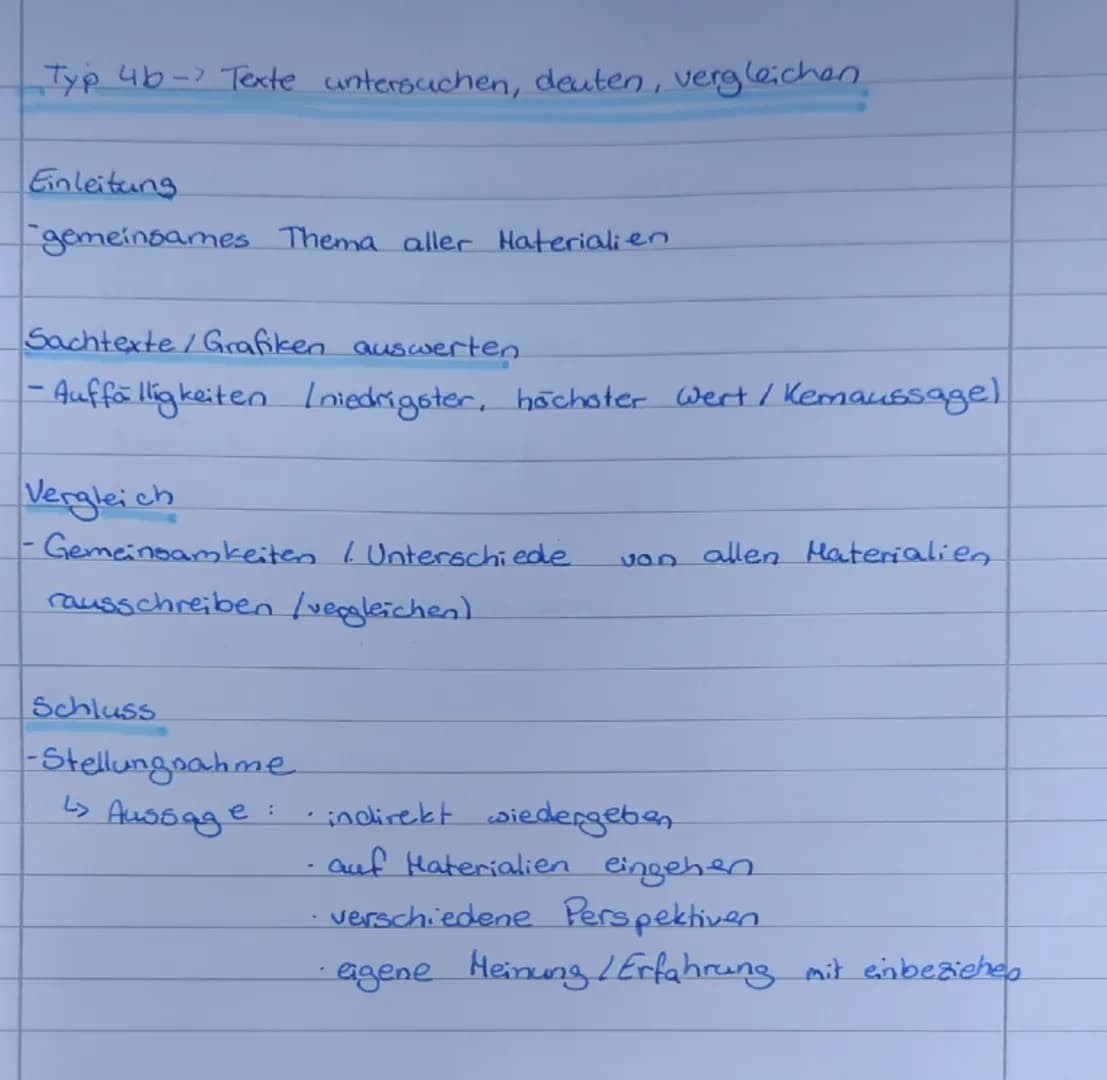 Typ 4b -> Texte untersuchen, deuten, vergleichen
Einleitung
- gemeinsames Thema aller Materialien
Sachtexte / Grafiken auswerten
- Auffälligkeiten (niedrigster, höchster Wert / Kernaussage)
Vergleich
- Gemeinsamkeiten / Unterschiede von allen Materialien
rausschreiben (vergleichen)
Schluss
- Stellungnahme
↳ Aussage : · indirekt wiedergeben
· auf Materialien eingehen
· verschiedene Perspektiven
· eigene Meinung / Erfahrung mit einbeziehen